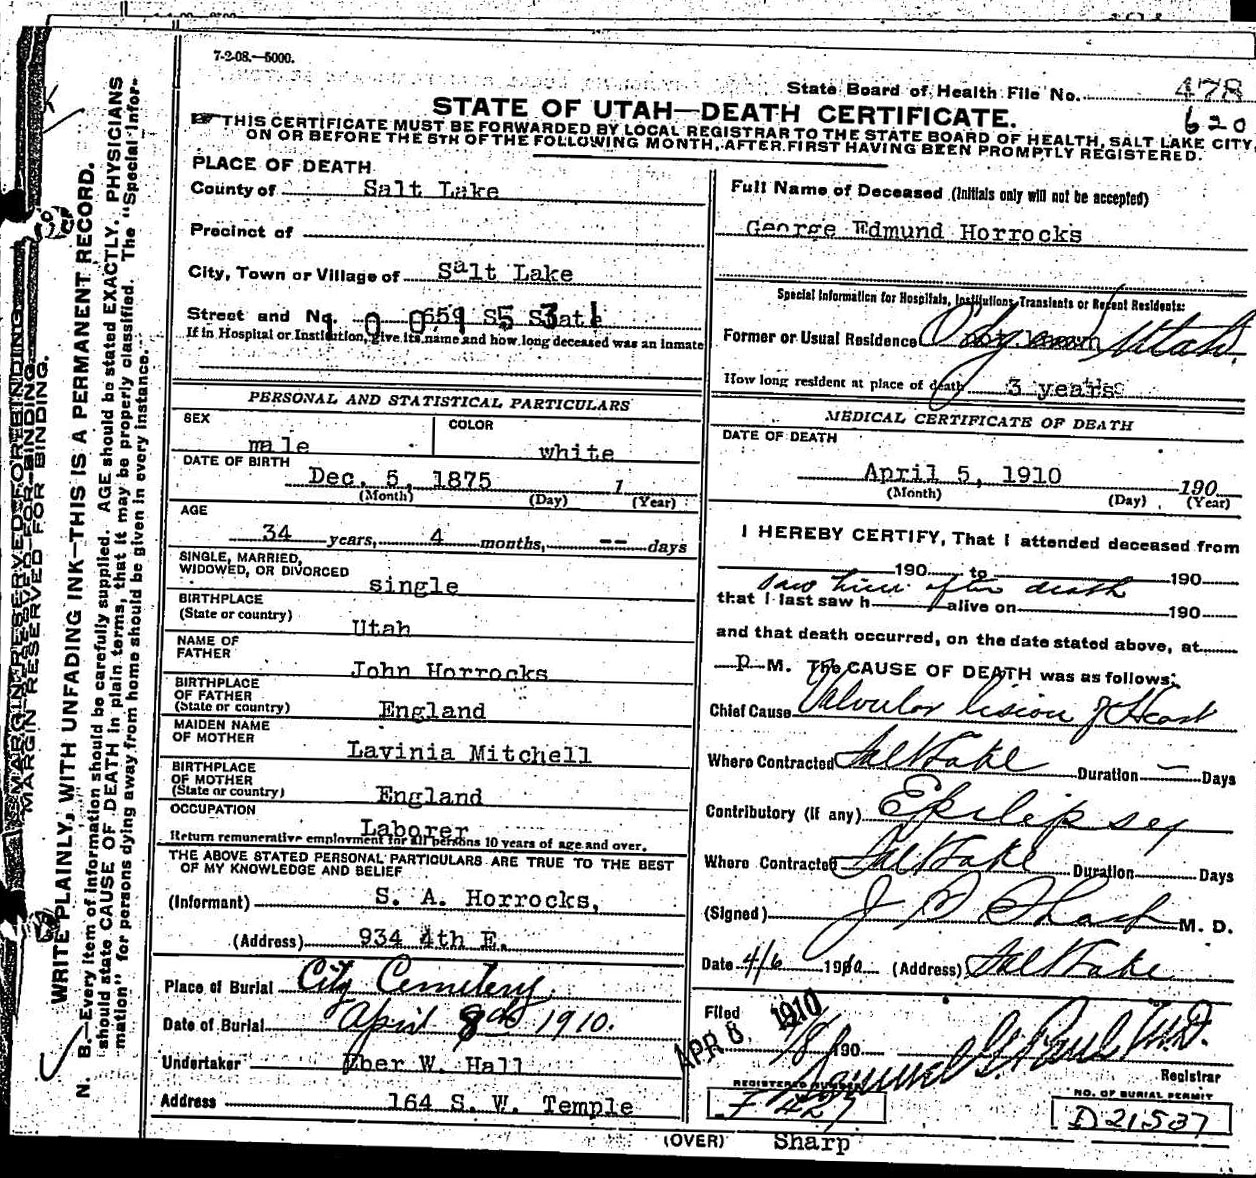 7-2-08.—5000.
State Board of Health File No. 478
620
STATE OF UTAH—DEATH CERTIFICATE.
THIS CERTIFICATE MUST BE FORWARDED BY LOCAL REGISTRAR TO THE STATE BOARD OF HEALTH, SALT LAKE CITY,
ON OR BEFORE THE 5TH OF THE FOLLOWING MONTH, AFTER FIRST HAVING BEEN PROMPTLY REGISTERED.
PLACE OF DEATH
County of Salt Lake
Precinct of
City, Town or Village of Salt Lake
Street and No. 659 S State
1001531
If in Hospital or Institution, give its name and how long deceased was an inmate
Full Name of Deceased (Initials only will not be accepted)
George Edmund Horrocks
Special Information for Hospitals, Institutions, Transients or Recent Residents:
Former or Usual Residence Ogden Utah.
How long resident at place of death 3 years
PERSONAL AND STATISTICAL PARTICULARS
SEX male
COLOR white
DATE OF BIRTH
Dec. 5, 1875 1
(Month) (Day) (Year)
AGE
34 years, 4 months, -- days
SINGLE, MARRIED,
WIDOWED, OR DIVORCED single
BIRTHPLACE
(State or country) Utah
NAME OF
FATHER John Horrocks
BIRTHPLACE
OF FATHER
(State or country) England
MAIDEN NAME
OF MOTHER Lavinia Mitchell
BIRTHPLACE
OF MOTHER
(State or country) England
OCCUPATION Laborer
Return remunerative employment for all persons 10 years of age and over.
THE ABOVE STATED PERSONAL PARTICULARS ARE TRUE TO THE BEST
OF MY KNOWLEDGE AND BELIEF
(Informant) S. A. Horrocks,
(Address) 934 4th E.
Place of Burial City Cemetery
Date of Burial April 8th 1910.
Undertaker Eber W. Hall
Address 164 S. W. Temple
MEDICAL CERTIFICATE OF DEATH
DATE OF DEATH
April 5, 1910 190
(Month) (Day) (Year)
I HEREBY CERTIFY, That I attended deceased from
190 to 190
saw him after death
that I last saw h alive on 190
and that death occurred, on the date stated above, at
P M. The CAUSE OF DEATH was as follows:
Chief Cause Valvular lision of Heart
Where Contracted Salt Lake Duration — Days
Contributory (if any) Epilipsey
Where Contracted Salt Lake Duration Days
(Signed) J F Sharp M. D.
Date 4/6 1910 (Address) Salt Lake
Filed APR 8 1910
4/8 190 Samuel G. Paul M.D.
Registrar
REGISTERED NUMBER
F 427
NO. OF BURIAL PERMIT
D 21537
(OVER) Sharp
MARGIN RESERVED FOR BINDING.
WRITE PLAINLY, WITH UNFADING INK—THIS IS A PERMANENT RECORD.
N. B.—Every item of information should be carefully supplied. AGE should be stated EXACTLY. PHYSICIANS
should state CAUSE OF DEATH in plain terms, that it may be properly classified. The "Special Infor-
mation" for persons dying away from home should be given in every instance.